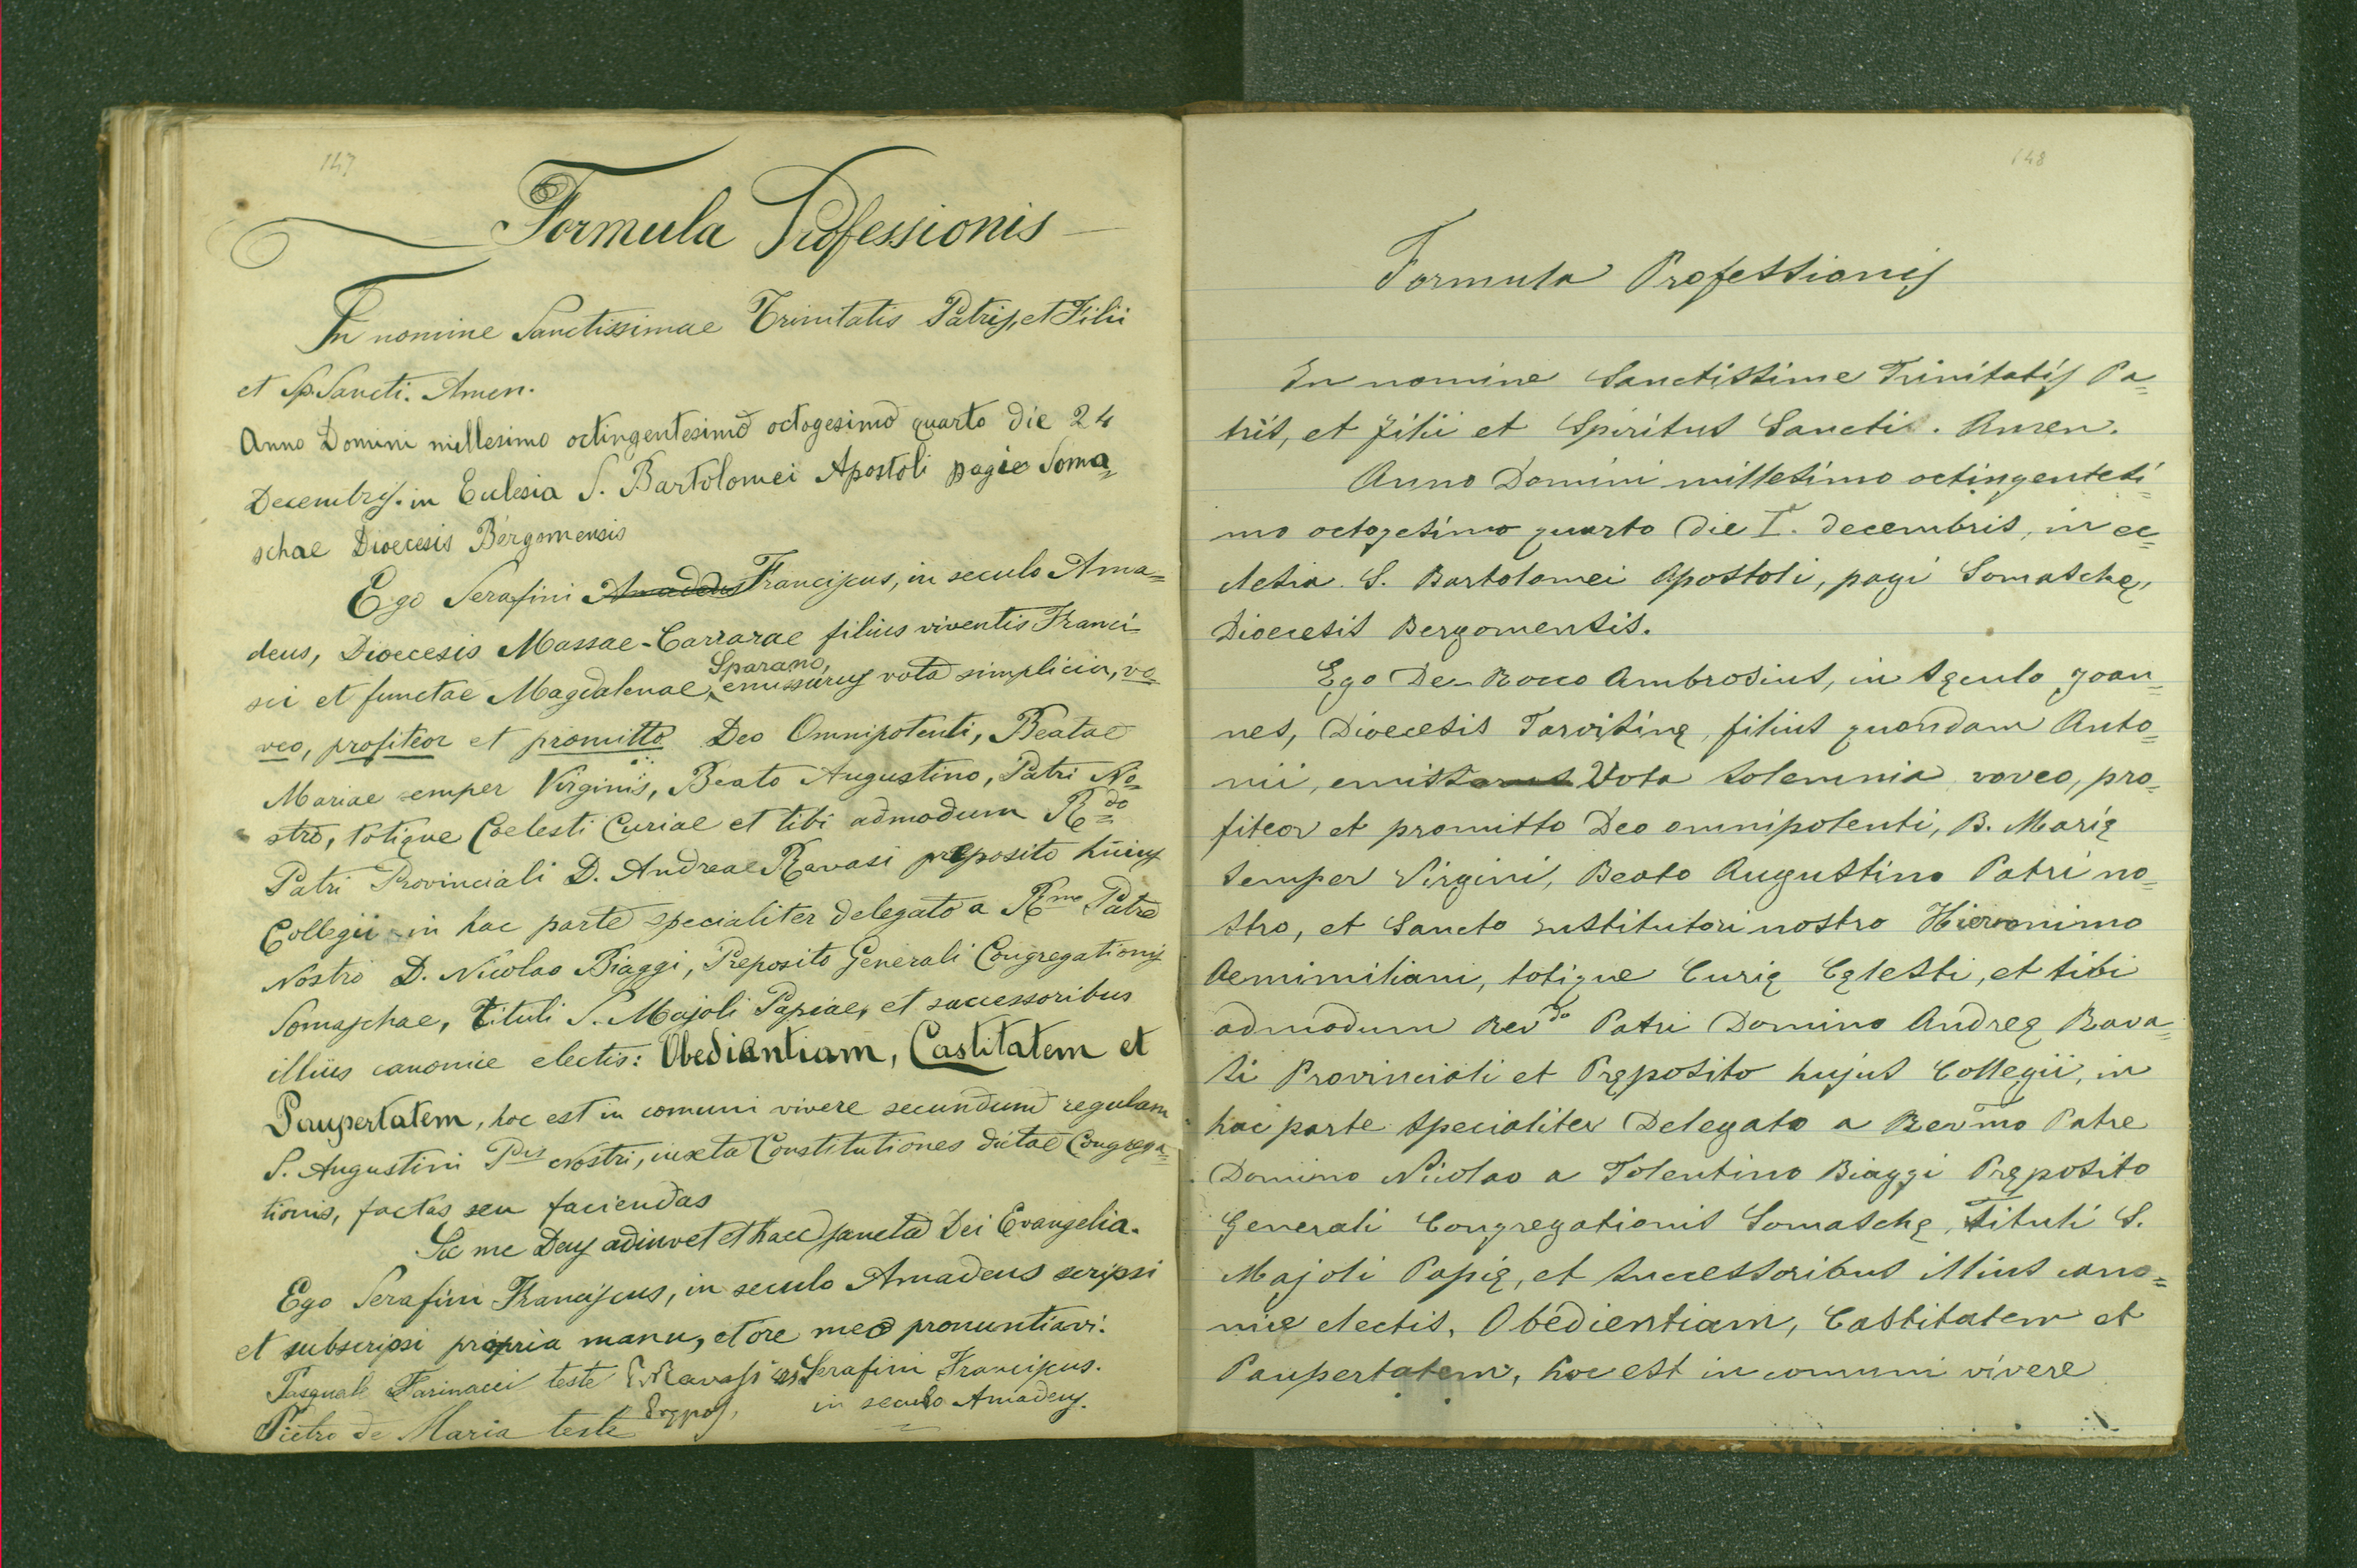 147
Formula Professionis
In nomine Sanctissimae Trinitatis Patris, et Filii
et Sp. Sancti. Amen.
Anno Domini millesimo octingentesimo octogesimo quarto die 24
Decembris. in Eclesia S. Bartolomei Apostoli pagie Soma=
schae Dioecesis Bergomensis
Ego Serafini Amadeus Franciscus, in seculo Ama=
deus, Dioecesis Massae-Carrarae filius viventis Franci
sci et functae Magdalenae, Sparano, emissurus vota simplicia, vo
veo, profiteor et promitto Deo Omnipotenti, Beatae
Mariae semper Virginis, Beato Augustino, Patri No=
stro, totique Coelesti Curiae et tibi admodum R.do
Patri Provinciali D. Andreae Ravasi preposito huius
Collegii in hac parte specialiter delegato a R.mo Patre
Nostro D. Nicolao Biaggi, Preposito Generali Congregationis
Somaschae, tituli S. Majoli Papiae, et successoribus
illius canonice electis: Obedientiam, Castitatem et
Paupertatem, hoc est in comuni vivere secundum regulam
S. Augustini Pris Nostri, iuxta Constitutiones dictae Congrega=
tionis, factas seu faciendas
Sic me Deus adiuvet et haec sancta Dei Evangelia.
Ego Serafini Franciscus, in seculo Amadeus scripsi
et subscripsi propria manu, et ore meo pronuntiavi.
Pasquale Farinacci teste Ravasi Serafini Franciscus.
Pietro de Maria teste Prępos, in seculo Amadeus.
148
Formula Professionis
In nomine Sanctissime Trinitatis Pa=
tris, et Filii et Spiritus Sancti. Amen.
Anno Domini millesimo octingentesi=
mo octogesimo quarto die I. decembris, in ec=
clesia S. Bartolomei Apostoli, pagi Somaschę,
Dioecesis Bergomensis.
Ego De-Rocco Ambrosius, in sęculo Joan=
nes, Dioecesis Tarvisinę, filius quondam Anto=
nii, emissarus Vota solemnia voveo, pro=
fiteor et promitto Deo omnipotenti, B. Marię
semper Virgini, Beato Augustino Patri no=
stro, et Sancto institutori nostro Hieronimo
Aemimiliani, totique Curię Cęlesti, et tibi
admodum Rev.do Patri Domino Andreę Rava=
si Provinciali et Pręposito hujus Collegii, in
hac parte specialiter Delegato a Rev.mo Patre
Domino Nicolao a Tolentino Biaggi Pręposito
Generali Congregationis Somaschę, Tituli S.
Majoli Papię, et successoribus illius cano=
nice electis, Obedientiam, Castitatem et
Paupertatem, hoc est in comuni vivere